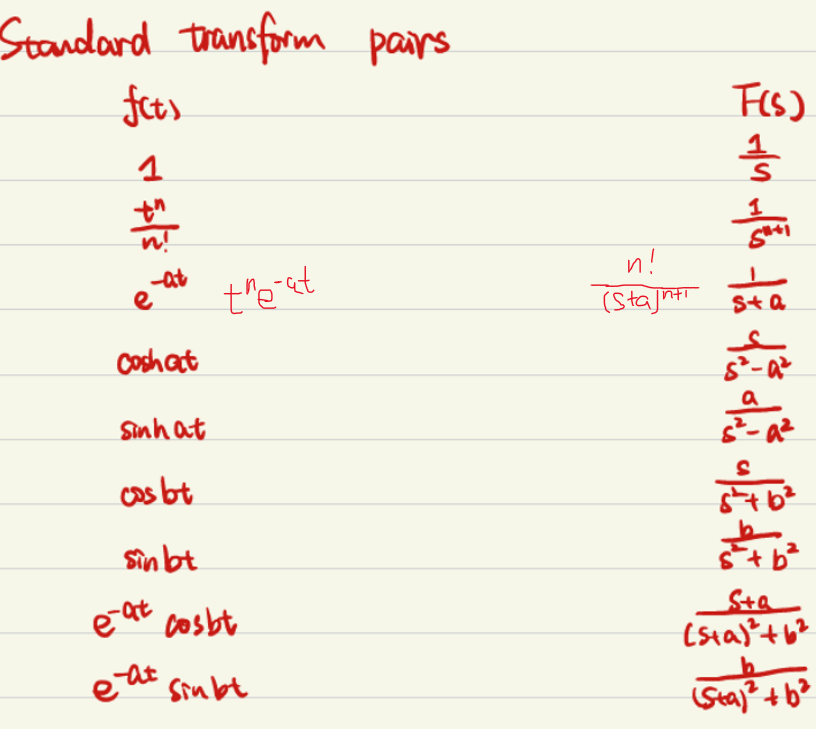 Standard transform pairs
f(t) F(s)
1 1/s
tⁿ/n! 1/sⁿ⁺¹
e⁻ᵃᵗ tⁿe⁻ᵃᵗ n!/(s+a)ⁿ⁺¹ 1/(s+a)
coshat s/(s²-a²)
sinhat a/(s²-a²)
cosbt s/(s²+b²)
sinbt b/(s²+b²)
e⁻ᵃᵗ cosbt (s+a)/((s+a)²+b²)
e⁻ᵃᵗ sinbt b/((s+a)²+b²)